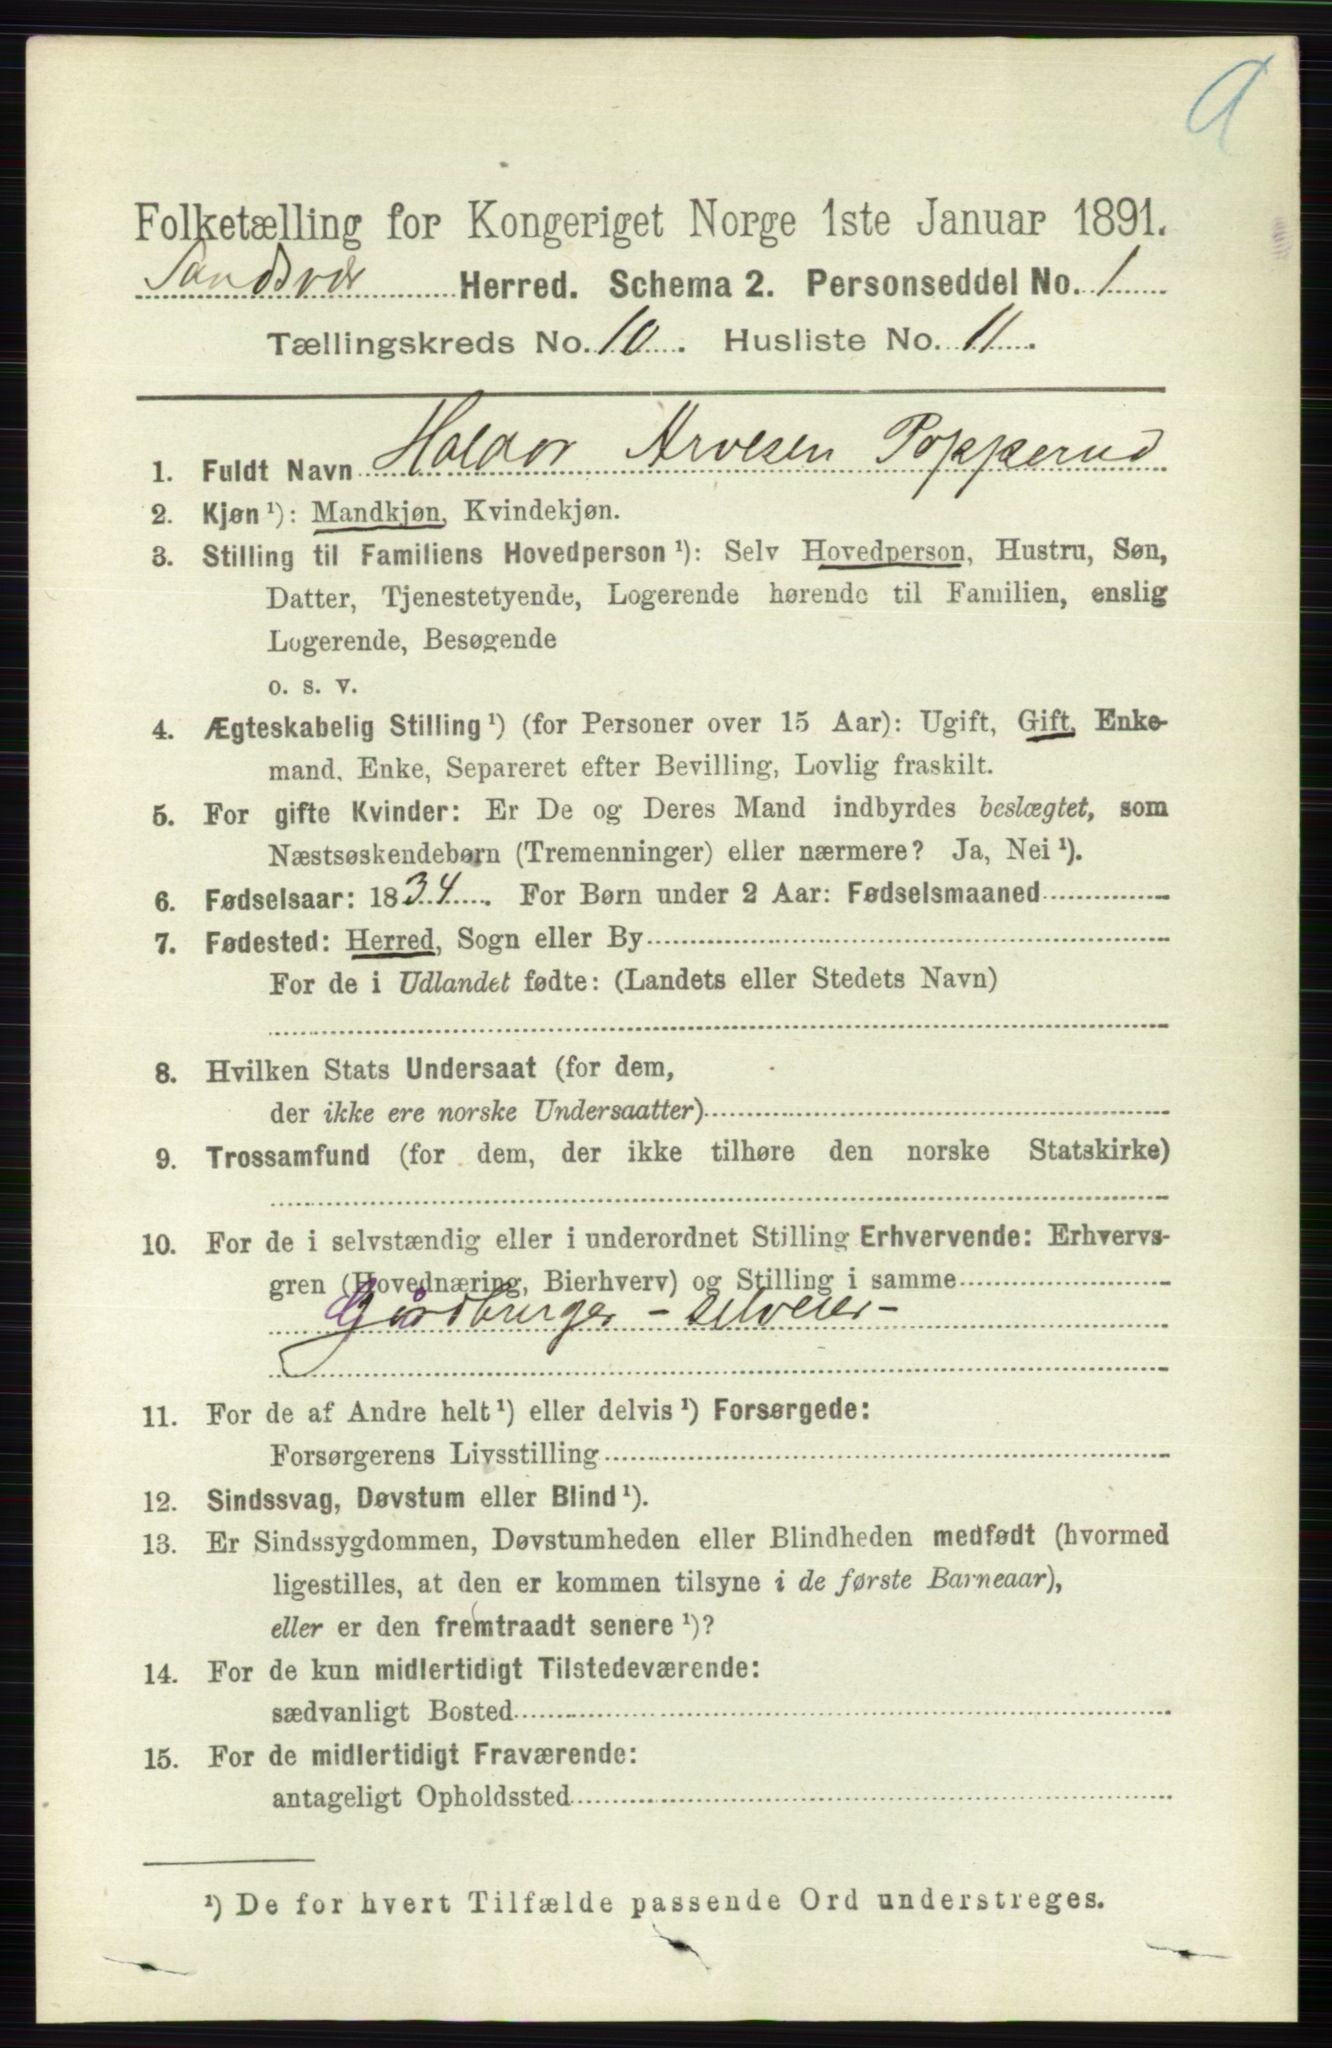 A
Folketælling for Kongeriget Norge 1ste Januar 1891.
Sandsvær Herred. Schema 2. Personseddel No. 1
Tællingskreds No. 10. Husliste No. 11.
1. Fuldt Navn Haldor Arvesen Popperud
2. Kjøn ¹): Mandkjøn, Kvindekjøn.
3. Stilling til Familiens Hovedperson ¹): Selv Hovedperson, Hustru, Søn,
Datter, Tjenestetyende, Logerende hørende til Familien, enslig
Logerende, Besøgende
o. s. v.
4. Ægteskabelig Stilling ¹) (for Personer over 15 Aar): Ugift, Gift, Enke-
mand, Enke, Separeret efter Bevilling, Lovlig fraskilt.
5. For gifte Kvinder: Er De og Deres Mand indbyrdes beslægtet, som
Næstsøskendebørn (Tremenninger) eller nærmere? Ja, Nei ¹).
6. Fødselsaar: 1834. For Børn under 2 Aar: Fødselsmaaned
7. Fødested: Herred, Sogn eller By
For de i Udlandet fødte: (Landets eller Stedets Navn)
8. Hvilken Stats Undersaat (for dem,
der ikke ere norske Undersaatter)
9. Trossamfund (for dem, der ikke tilhøre den norske Statskirke)
10. For de i selvstændig eller i underordnet Stilling Erhvervende: Erhvervs-
gren (Hovednæring, Bierhverv) og Stilling i samme
Gårdbruger - selveier -
11. For de af Andre helt ¹) eller delvis ¹) Forsørgede:
Forsørgerens Livsstilling
12. Sindssvag, Døvstum eller Blind ¹).
13. Er Sindssygdommen, Døvstumheden eller Blindheden medfødt (hvormed
ligestilles, at den er kommen tilsyne i de første Barneaar),
eller er den fremtraadt senere ¹)?
14. For de kun midlertidigt Tilstedeværende:
sædvanligt Bosted
15. For de midlertidigt Fraværende:
antageligt Opholdssted
¹) De for hvert Tilfælde passende Ord understreges.